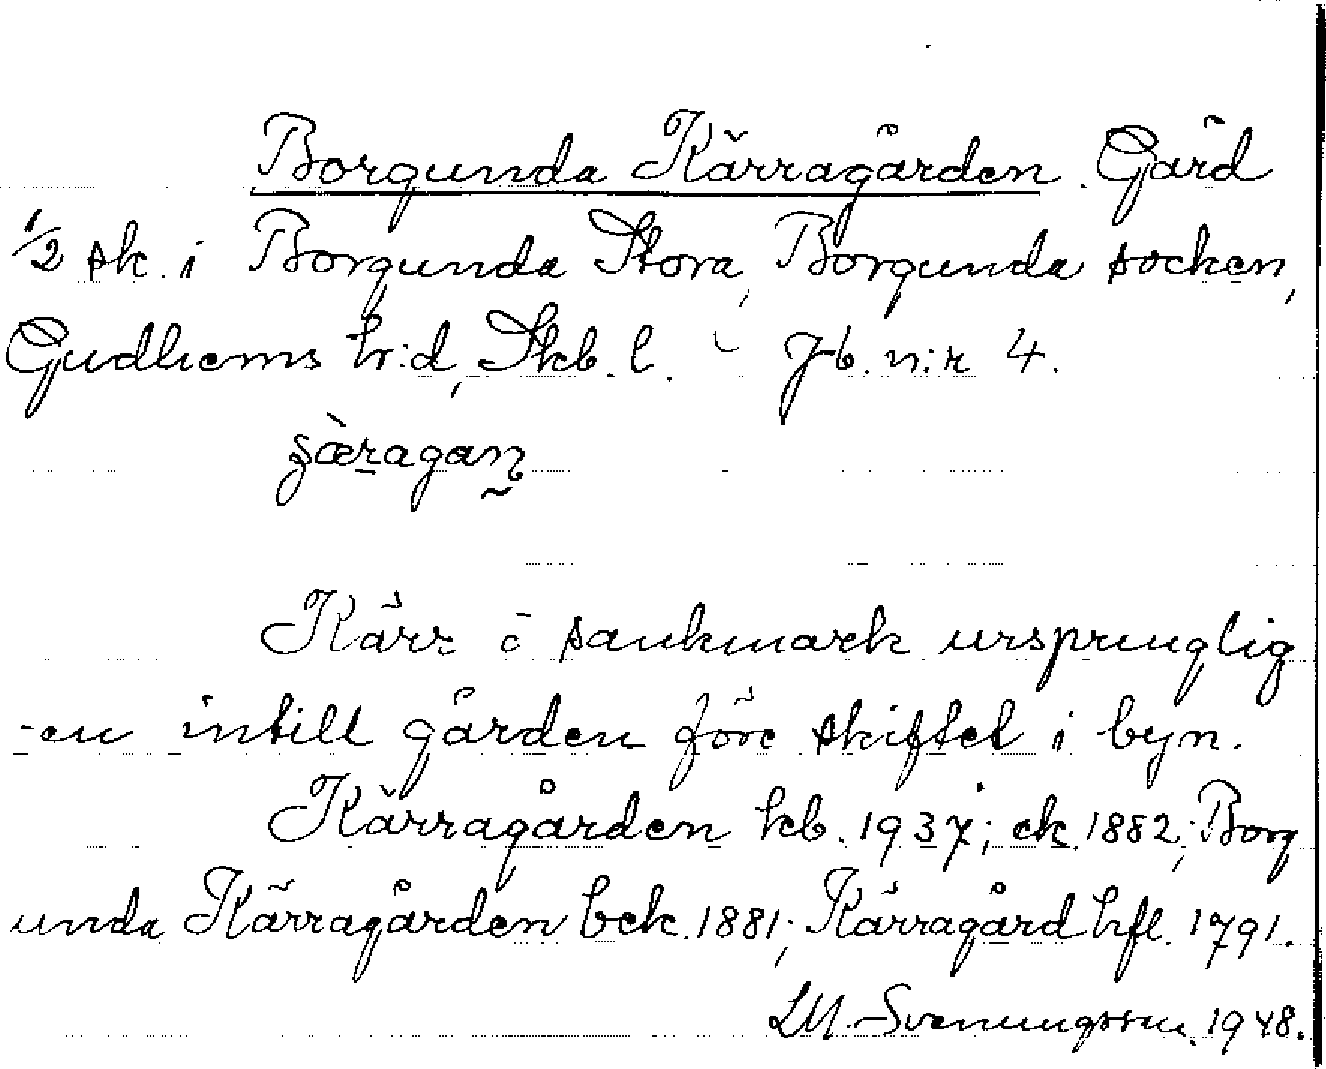 Borgunda Kärragården. Gård
1/2 sk. i Borgunda Stora, Borgunda socken,
Gudhems hr:d, Skb. l. Jb. n:r 4.
Kärr o sankmark ursprunglig
-en intill gården före skiftet i byn.
Kärragården kb. 1937; ek. 1882; Borg
unda Kärragården bek. 1881; Kärragård hfl. 1791.
LM. Svenungsson. 1948.